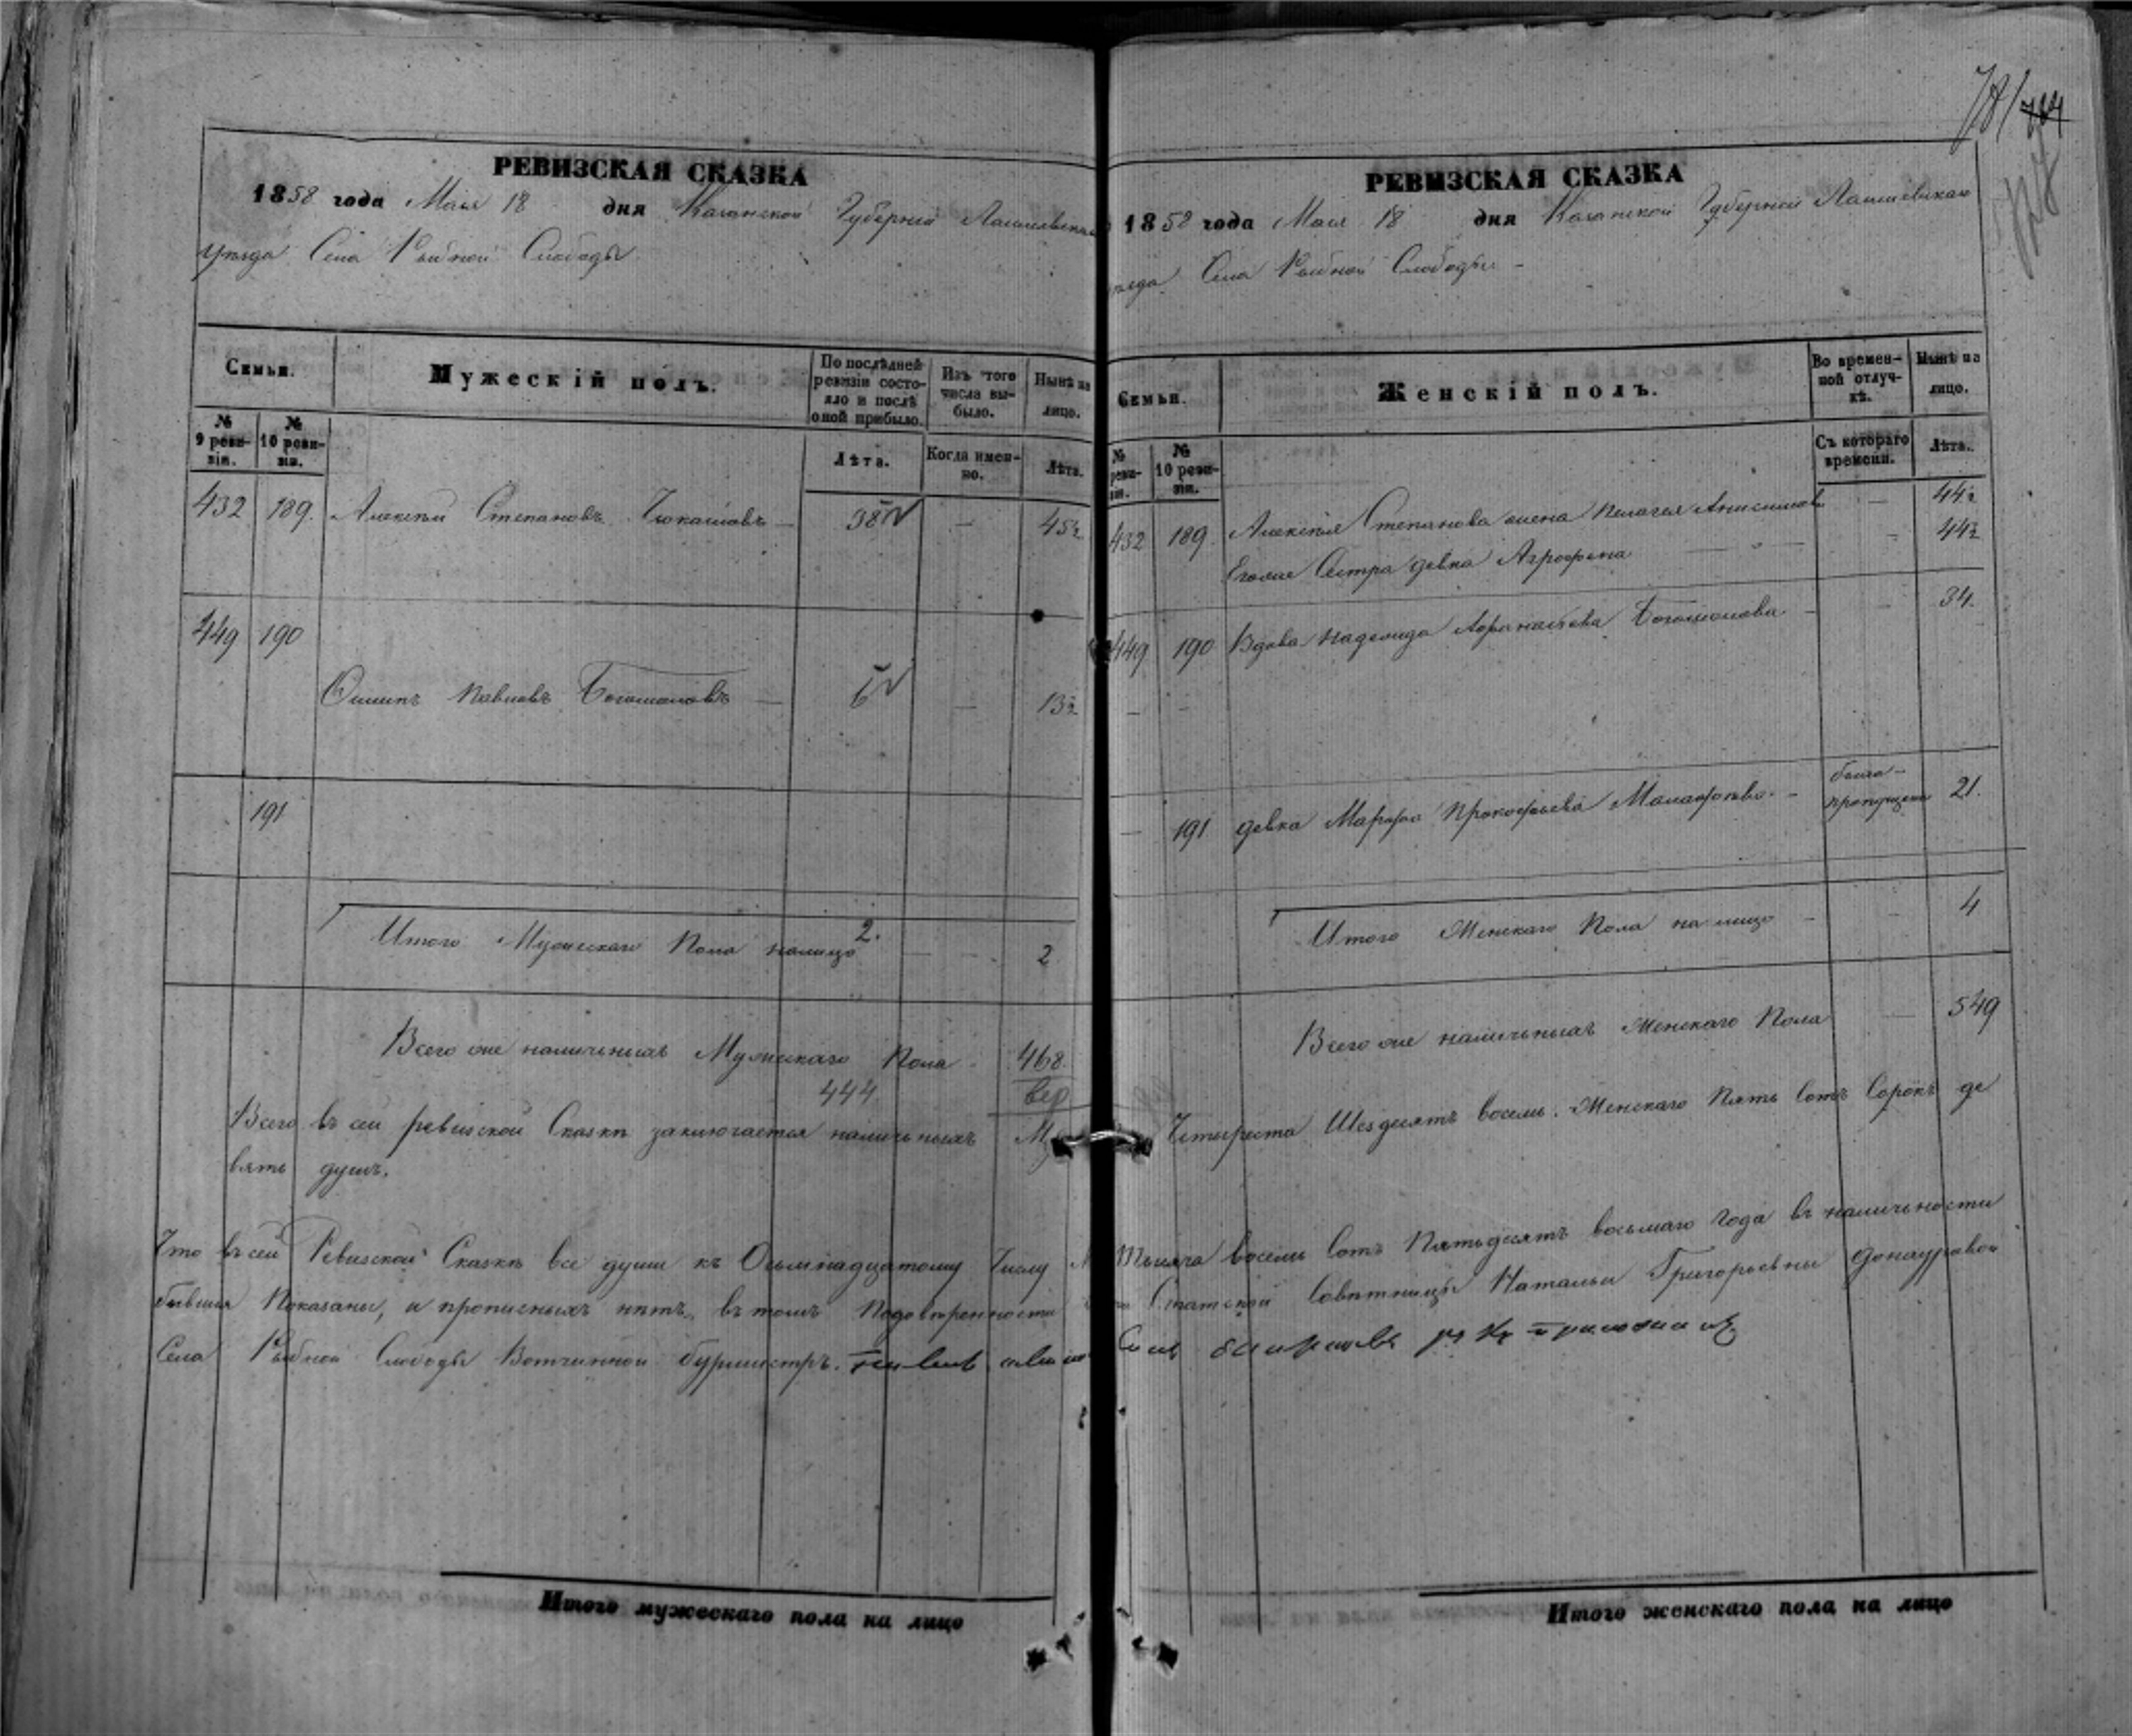 РЕВИЗСКАЯ СКАЗКА
1858 года Маія 18 дня Казанской Губерніи Лаишевскаго
уѣзда Села Рыбной Слободы
Семьи.
Мужескій полъ.
По послѣдней ревизіи состояло и послѣ оной прибыло.
Изъ того числа выбыло.
Нынѣ на лицо.
№ 9 ревизіи.
№ 10 ревизіи.
Лѣта.
Когда именно.
Лѣта.
432 189. Алексѣй Степановъ — 38 — 45½
449 190
Осипъ Павловъ — 6 — 13½
191
Итого Мужескаго Пола налицо 2. — — 2
Всего же наличныхъ Мужескаго Пола 468.
444
Всего въ сей ревизской Сказкѣ заключается наличныхъ
вять душъ.
Что въ сей Ревизской Сказкѣ все души къ Осьмнадцатому Числу
бывшія Показаны, и прописныхъ нѣтъ, въ томъ Подовѣренности
Села Рыбной Слободы Вотчинной бурмистръ.
78/
РЕВИЗСКАЯ СКАЗКА
1858 года Маія 18 дня Казанской Губерніи Лаишевскаго
уѣзда Села Рыбной Слободы –
Семьи.
Женскій полъ.
Во временной отлучкѣ.
Нынѣ на лицо.
№ реви-
№ 10 ревизіи.
Съ котораго времени.
Лѣта.
432 189. Алексѣя Степанова жена Пелагея Анисимова — 44½
Егоже Сестра девка Агрофена — — 44½
449 190 Вдова Надежда Афанасьева — 34.
— 191 девка Марфа Прокофьева — была пропущена 21.
Итого Женскаго Пола на лицо — 4
Всего же наличныхъ Женскаго Пола — 549
Четыреста Шесдесятъ восемь. Женскаго Пять Сотъ Сорокъ де
Тысяча восемь Сотъ Пятьдесятъ восьмаго Года въ наличности
Статской Совѣтницы Натальи Григорьевны Донауровой
Итого мужескаго пола на лицо
Итого женскаго пола на лицо